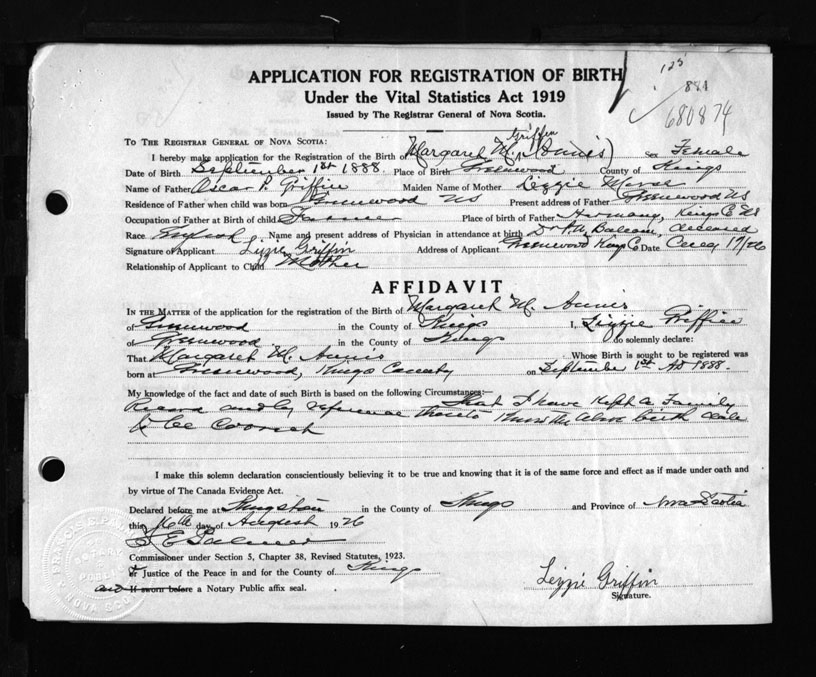 APPLICATION FOR REGISTRATION OF BIRTH
Under the Vital Statistics Act 1919
Issued by The Registrar General of Nova Scotia.
125
884
680874
TO THE REGISTRAR GENERAL OF NOVA SCOTIA:
Griffin
I hereby make application for the Registration of the Birth of Margaret M. (Annis) a Female
Date of Birth September 1st 1888. Place of Birth Greenwood County of Kings
Name of Father Oscar P. Griffin Maiden Name of Mother Lizzie
Residence of Father when child was born Greenwood NS Present address of Father Greenwood NS
Occupation of Father at Birth of child Farmer Place of birth of Father Harmony, Kings Co NS
Race English Name and present address of Physician in attendance at birth Dr Balcom, deceased
Signature of Applicant Lizzie Griffin Address of Applicant Greenwood Kings Co. Date 17/26
Relationship of Applicant to Child Mother
AFFIDAVIT
IN THE MATTER of the application for the registration of the Birth of Margaret M. Annis
of Greenwood in the County of Kings I, Lizzie Griffin
of Greenwood in the County of Kings do solemnly declare:
That Margaret M. Annis Whose Birth is sought to be registered was
born at Greenwood, Kings County on September 1st AD 1888.
My knowledge of the fact and date of such Birth is based on the following Circumstances:— That I have kept a Family
Record and by reference thereto know the above birth date
to be Correct
I make this solemn declaration conscientiously believing it to be true and knowing that it is of the same force and effect as if made under oath and
by virtue of The Canada Evidence Act.
Declared before me at Kingston in the County of Kings and Province of Nova Scotia
this 16th day of August 1926
Commissioner under Section 5, Chapter 38, Revised Statutes, 1923.
or Justice of the Peace in and for the County of Kings
and If sworn before a Notary Public affix seal.
Lizzie Griffin
Signature.